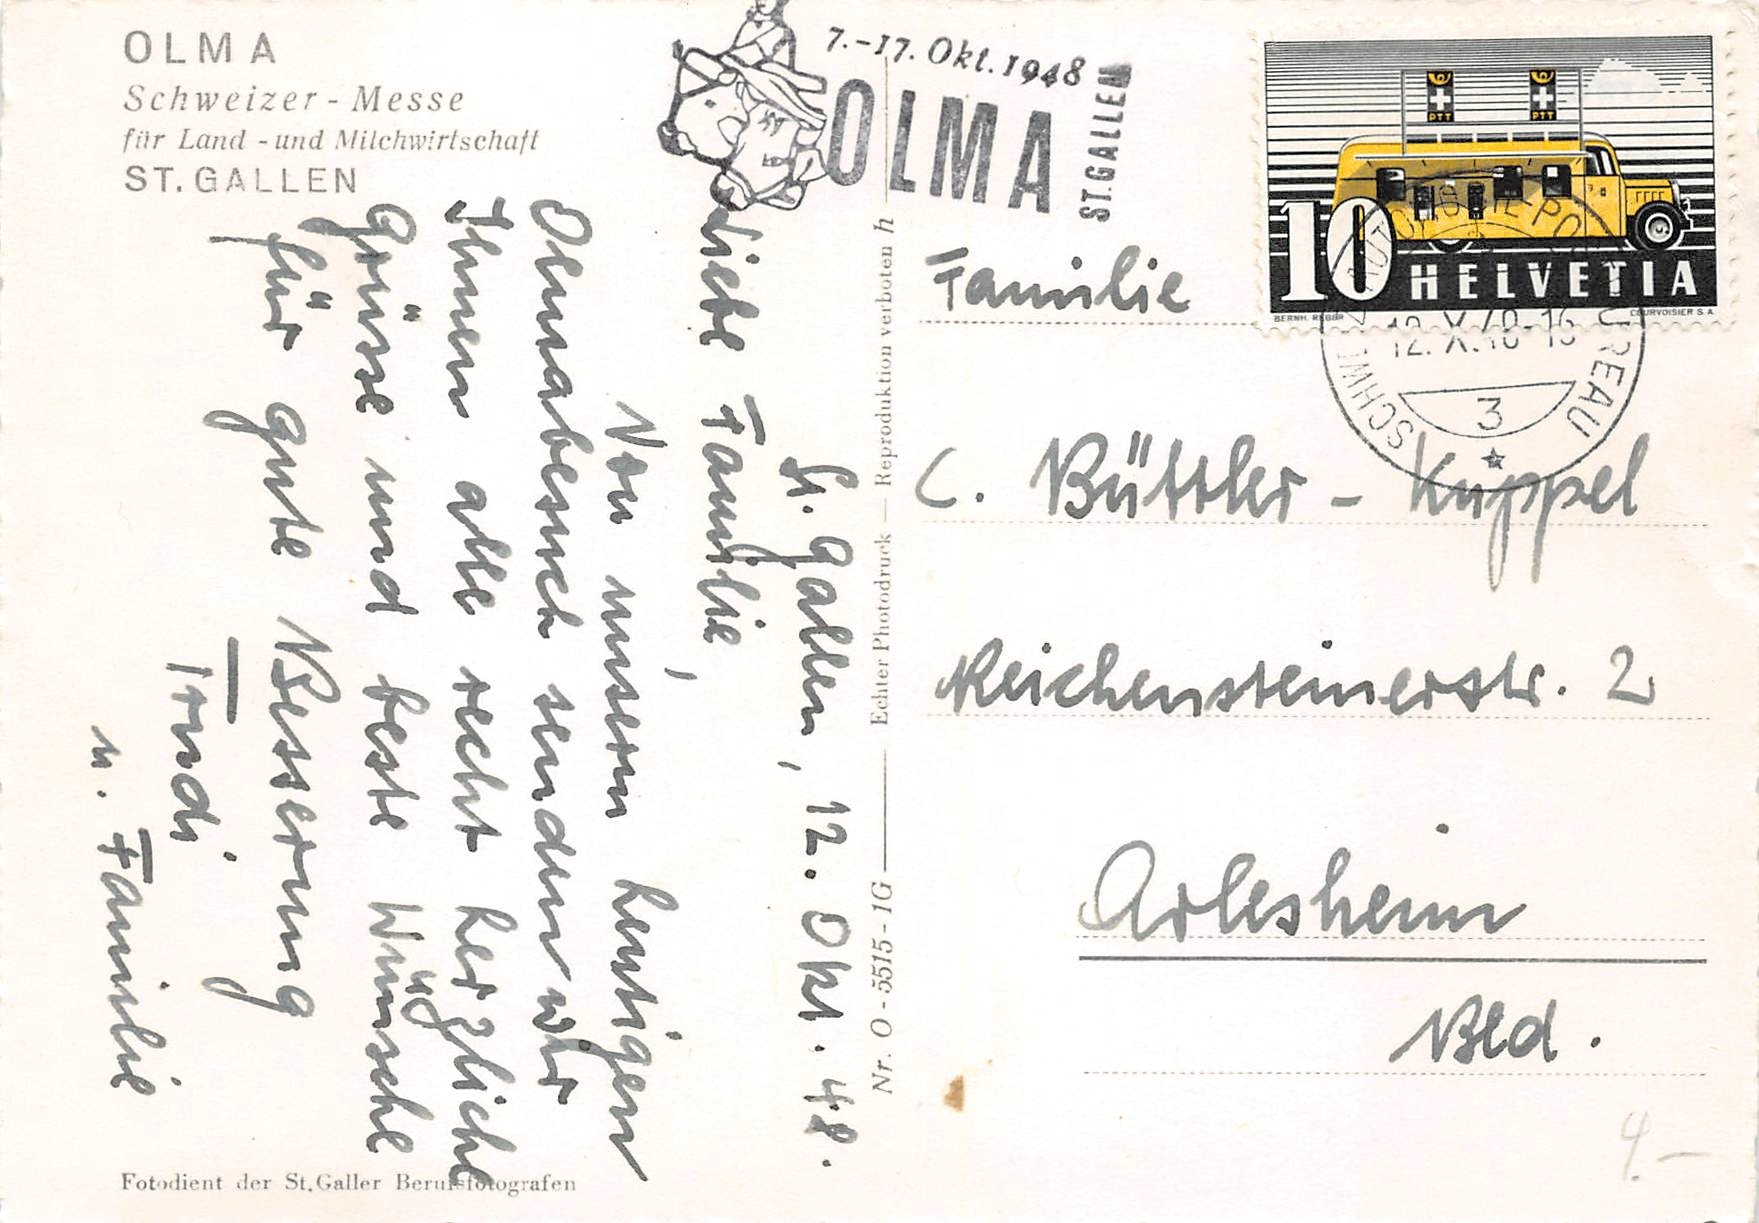 OLMA
Schweizer - Messe
für Land - und Milchwirtschaft
ST. GALLEN
7.-17. Okt. 1948
OLMA
ST. GALLEN
PTT
PTT
10 HELVETIA
BERNH. REBER
COURVOISIER S.A.
12.X.48-16
3
St. Gallen, 12. Okt. 48.
Liebe Familie,
Von unserm heutigen
Olmabesuch senden wir
Ihnen alle recht herzliche
Grüsse und beste Wünsche
für gute Besserung
Trudi
u. Familie
Nr. O - 5515 - 1G — Echter Photodruck — Reproduktion verboten h
Familie
C. Büttler - Kuppel
Reichensteinerstr. 2
Arlesheim
Bld.
4.—
Fotodient der St. Galler Berufsfotografen